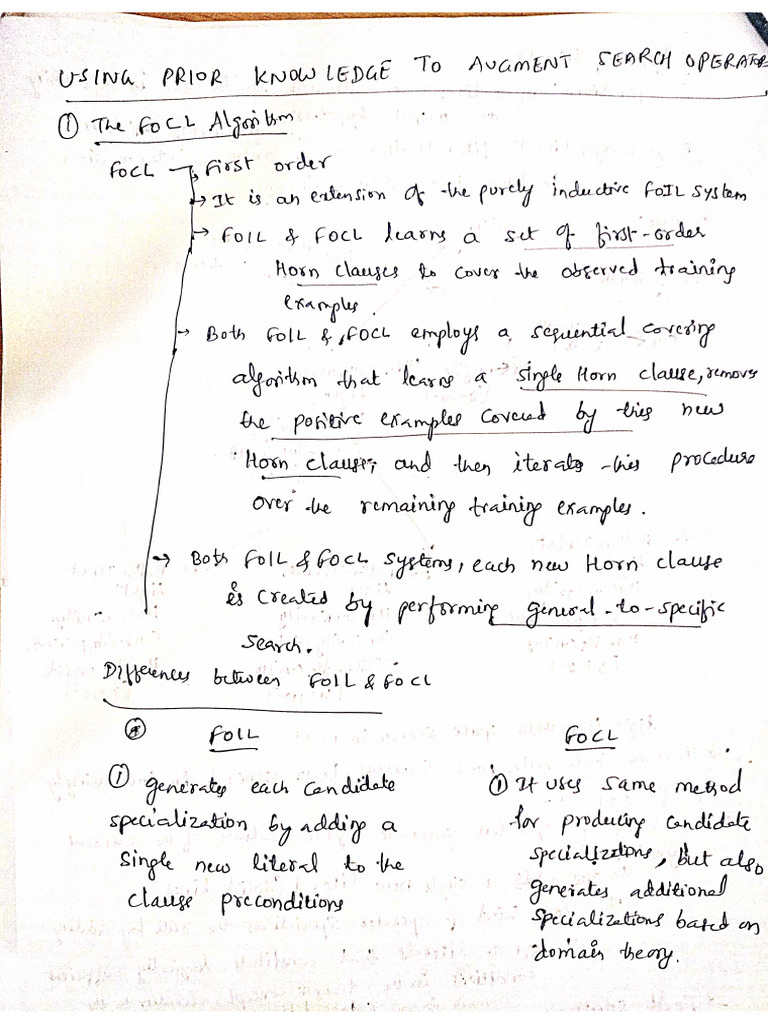 USING PRIOR KNOWLEDGE TO AUGMENT SEARCH OPERATOR
① The FOCL Algorithm
FOCL → First order
→ It is an extension of the purely inductive FOIL system
→ FOIL & FOCL learns a set of first-order
Horn clauses to cover the observed training
examples.
→ Both FOIL & FOCL employs a sequential covering
algorithm that learns a single Horn clause, removes
the positive examples covered by this new
Horn clause, and then iterates this procedure
over the remaining training examples.
→ Both FOIL & FOCL systems, each new Horn clause
is created by performing general-to-specific
search.
Differences between FOIL & FOCL
FOIL FOCL
① generates each candidate
specialization by adding a
single new literal to the
clause preconditions
① It uses same method
for producing candidate
specializations, but also
generates additional
specializations based on
domain theory.